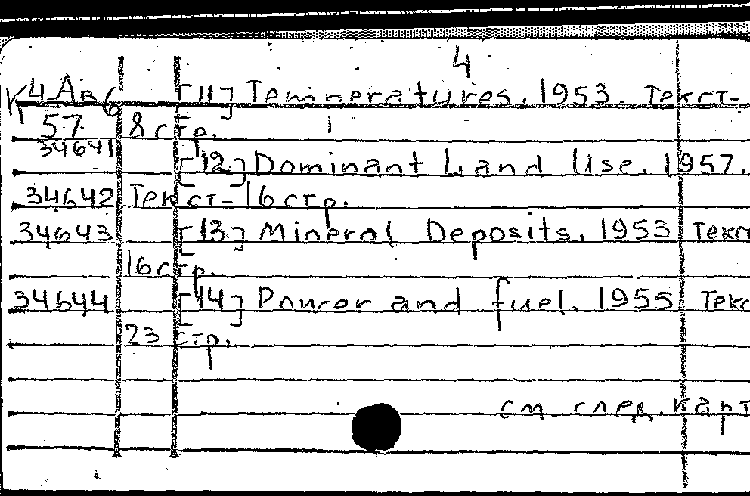 4
К 4-Ав6 [11] Temperatures. 1953. Текст-
57 8 стр.
34641 [12] Dominant Land Use. 1957.
34642 Текст-16 стр.
34643 [13] Mineral Deposits. 1953 Текс
16 стр.
34644 [14] Power and fuel. 1955 Текс
23 стр.
см. след. карт